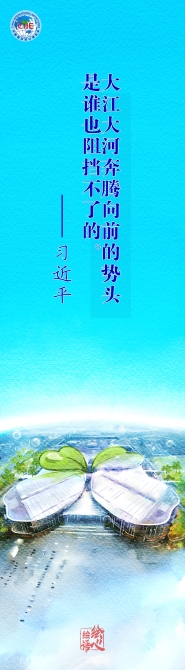 CIIE
大江大河奔腾向前的势头
是谁也阻挡不了的。
——习近平